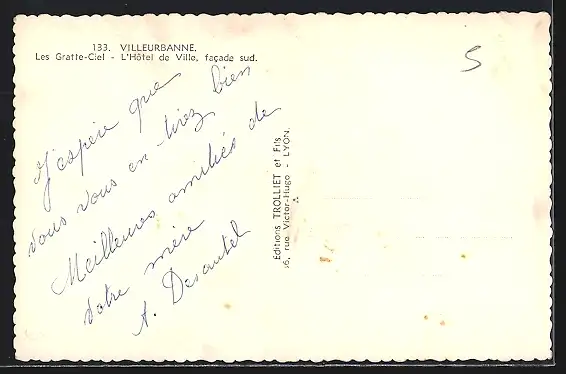 133. VILLEURBANNE.
Les Gratte-Ciel - L'Hôtel de Ville, façade sud.
5
J'espère que
vous vous en tirez bien
Meilleures amitiés de
votre mère
A. Desautel
Editions TROLLIET et Fils
36, rue Victor-Hugo - LYON.